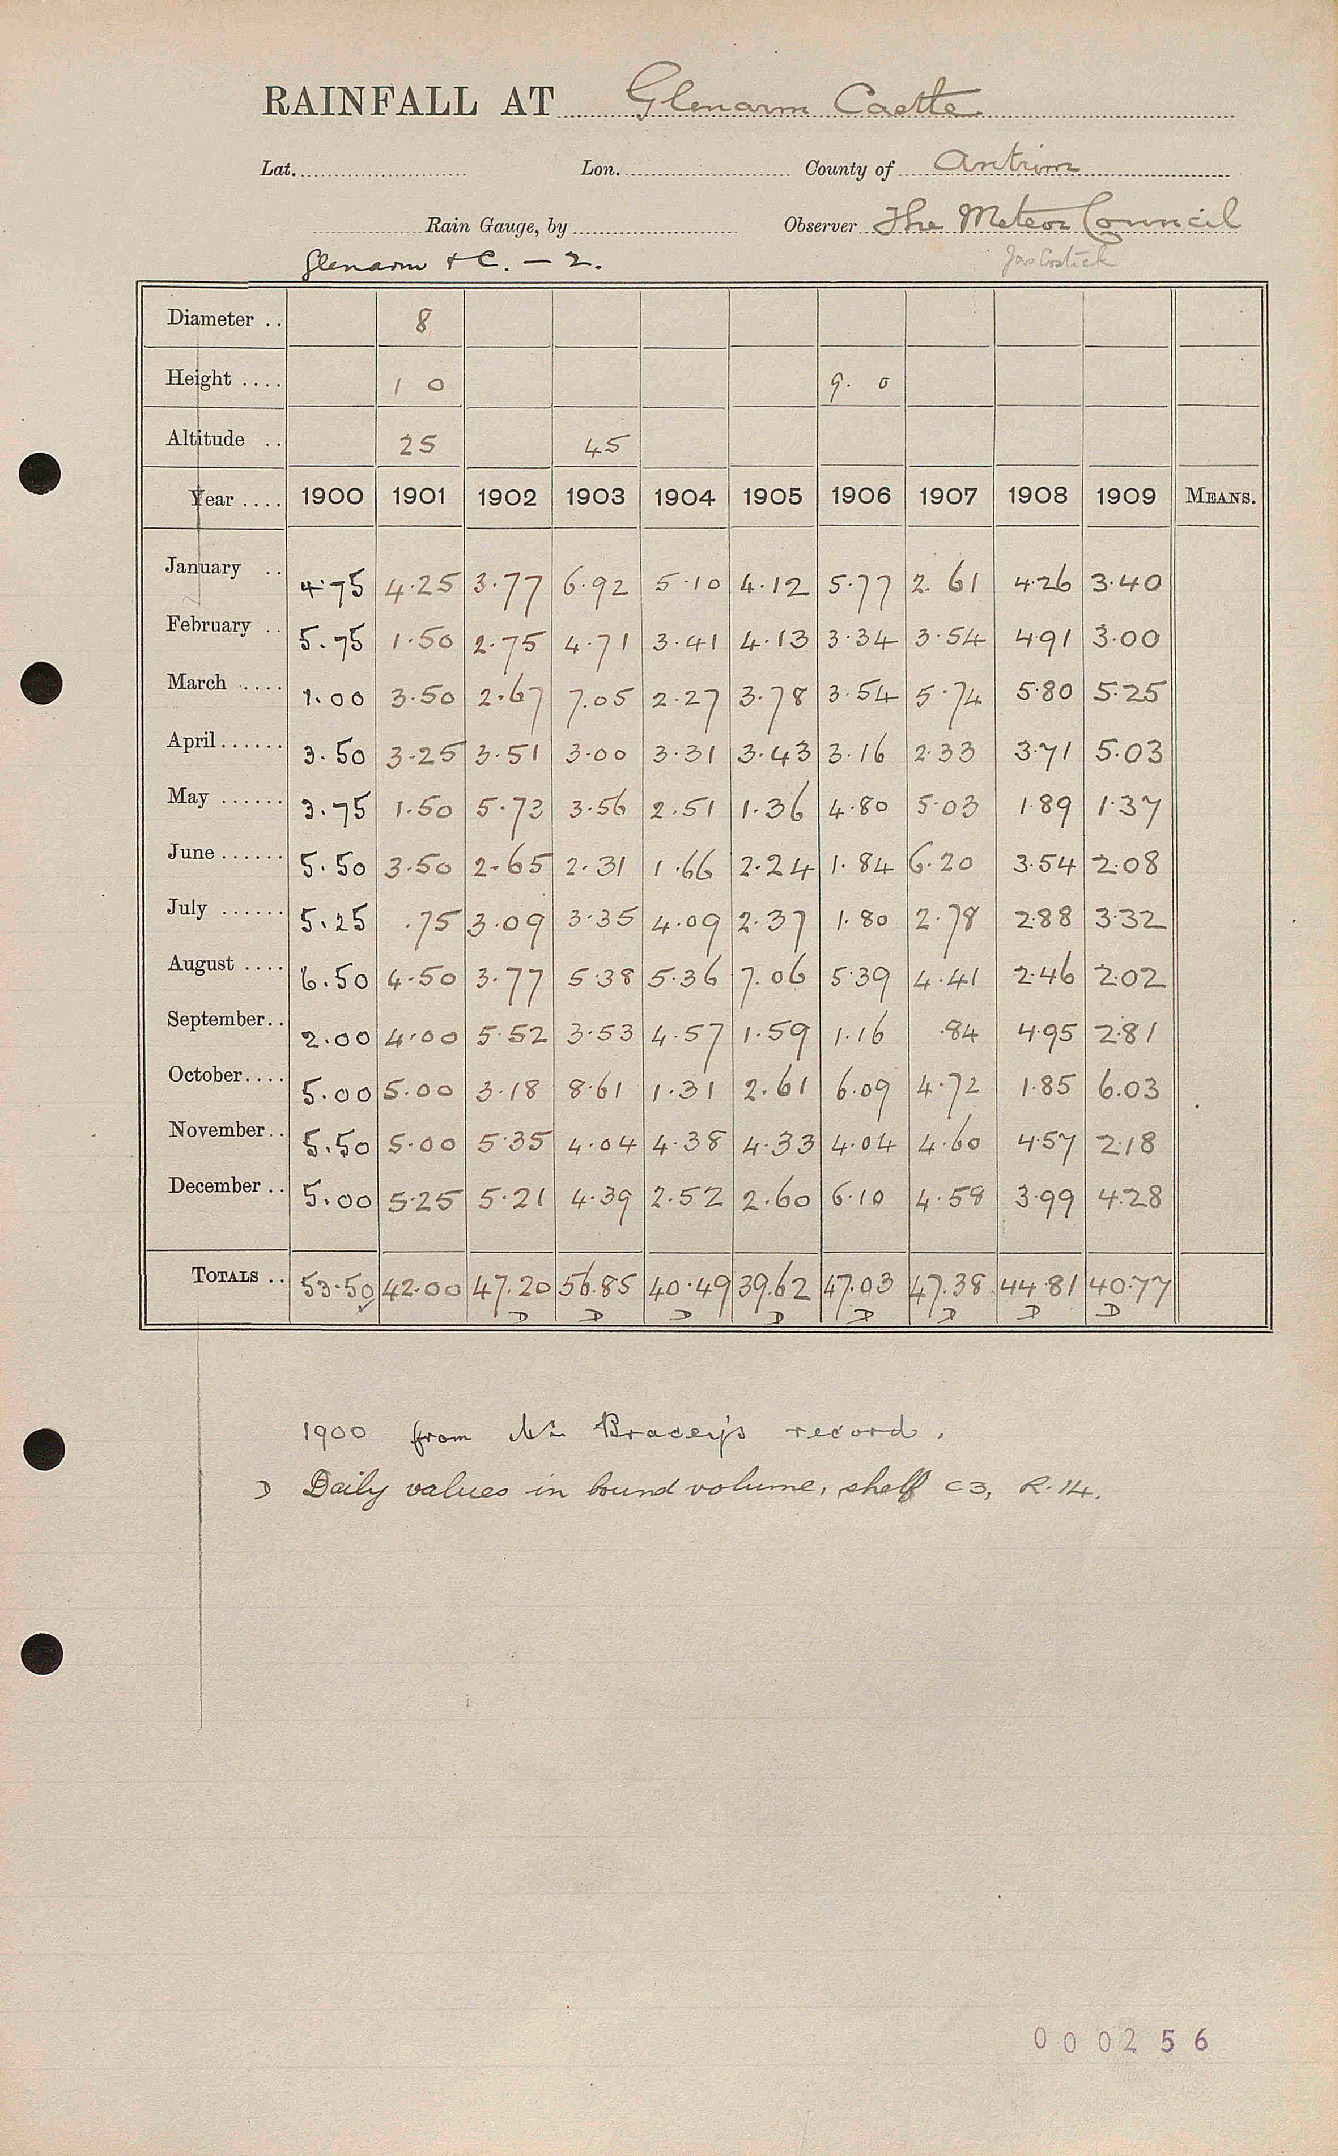 RAINFALL AT Glenarm Castle
Lat. Lon. County of Antrim
Rain Gauge, by Observer The Meteor Council
Glenarm + C. — 2. Jas Costick
Diameter .. 8
Height .... 1 0 9. 0
Altitude .. 25 45
Year .... 1900 1901 1902 1903 1904 1905 1906 1907 1908 1909 MEANS.
January .. 4.75 4.25 3.77 6.92 5.10 4.12 5.77 2.61 4.26 3.40
February .. 5.75 1.50 2.75 4.71 3.41 4.13 3.34 3.54 4.91 3.00
March .... 1.00 3.50 2.67 7.05 2.27 3.78 3.54 5.74 5.80 5.25
April ...... 3.50 3.25 3.51 3.00 3.31 3.43 3.16 2.33 3.71 5.03
May ...... 3.75 1.50 5.73 3.56 2.51 1.36 4.80 5.03 1.89 1.37
June ...... 5.50 3.50 2.65 2.31 1.66 2.24 1.84 6.20 3.54 2.08
July ...... 5.25 .75 3.09 3.35 4.09 2.37 1.80 2.78 2.88 3.32
August .... 6.50 4.50 3.77 5.38 5.36 7.06 5.39 4.41 2.46 2.02
September.. 2.00 4.00 5.52 3.53 4.57 1.59 1.16 .84 4.95 2.81
October.... 5.00 5.00 3.18 8.61 1.31 2.61 6.09 4.72 1.85 6.03
November.. 5.50 5.00 5.35 4.04 4.38 4.33 4.04 4.60 4.57 2.18
December .. 5.00 5.25 5.21 4.39 2.52 2.60 6.10 4.58 3.99 4.28
TOTALS .. 53.50 42.00 47.20 56.85 40.49 39.62 47.03 47.38 44.81 40.77
D D D D D D D D
1900 from Mr Bracey's record.
D Daily values in bound volume, shelf C3, R.14.
000256